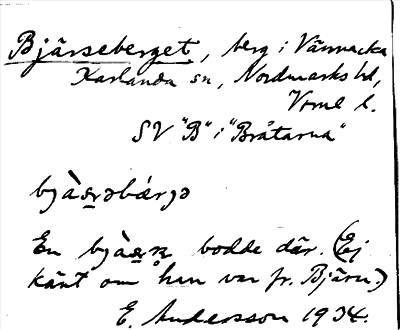 Bjärseberget, berg i Vännacka
Karlanda sn, Nordmarks hd,
Vrml l.
SV "B" i "Bråtarna"
bjàṣəbárjə
En bjàṣṇ bodde där. (Ej
känt om han var fr. Bjärn.)
E. Andersson 1934.